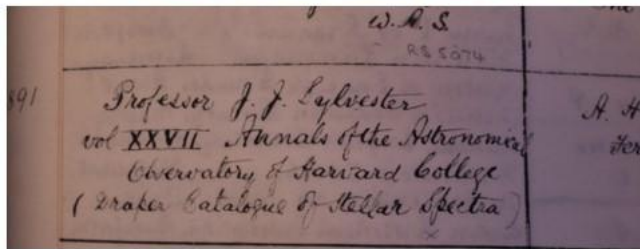 W. R. S.
RS 5074
891
Professor J. J. Sylvester
vol XXVII Annals of the Astronomical
Observatory of Harvard College
(Draper Catalogue of Stellar Spectra)
A. H